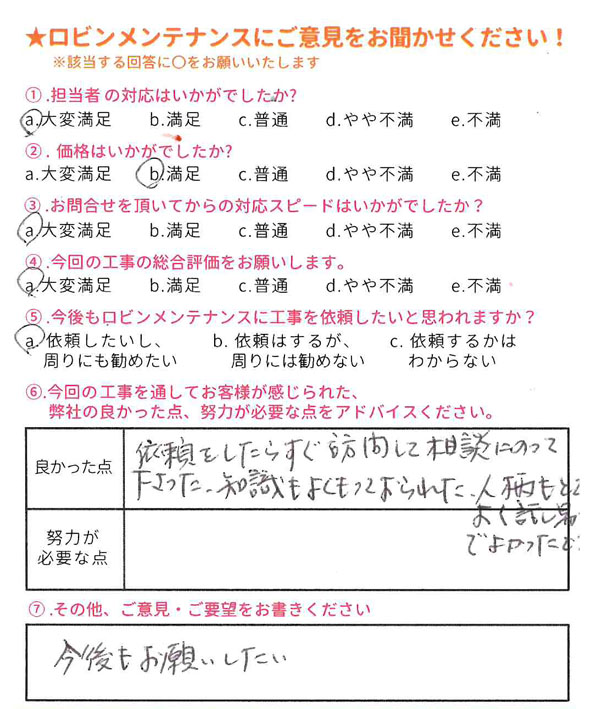 ★ロビンメンテナンスにご意見をお聞かせください！
※該当する回答に〇をお願いいたします
①.担当者の対応はいかがでしたか?
a.大変満足 b.満足 c.普通 d.やや不満 e.不満
②. 価格はいかがでしたか?
a.大変満足 b.満足 c.普通 d.やや不満 e.不満
③.お問合せを頂いてからの対応スピードはいかがでしたか？
a.大変満足 b.満足 c.普通 d.やや不満 e.不満
④.今回の工事の総合評価をお願いします。
a.大変満足 b.満足 c.普通 d.やや不満 e.不満
⑤.今後もロビンメンテナンスに工事を依頼したいと思われますか？
a. 依頼したいし、 b. 依頼はするが、 c. 依頼するかは
周りにも勧めたい 周りには勧めない わからない
⑥.今回の工事を通してお客様が感じられた、
弊社の良かった点、努力が必要な点をアドバイスください。
良かった点
依頼をしたらすぐ訪問して相談にのって
下さった、知識もよくもっておられた、人柄もとて
よく話し易
でよかったと
努力が
必要な点
⑦.その他、ご意見・ご要望をお書きください
今後もお願いしたい